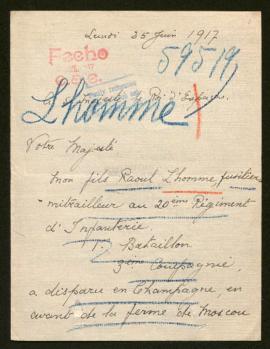 Lundi 25 Juin 1917
Fecho
59519
Sa Majesté Roi d'Espagne
Lhomme
Votre Majesté
Mon fils Raoul Lhomme, fusilier
mitrailleur au 20ème Régiment
d'Infanterie.
1er Bataillon
3ème Compagnie
a disparu en Champagne, en
avant de la ferme de Moscou